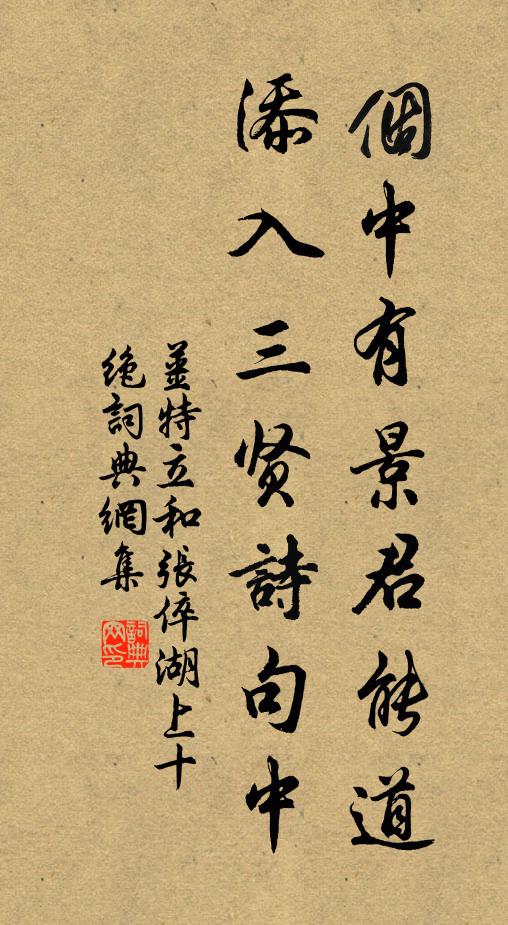 個中有景君能道
添入三贤詩句中
薑特立和張倅湖上十
絶詞典網集
詞典
网印